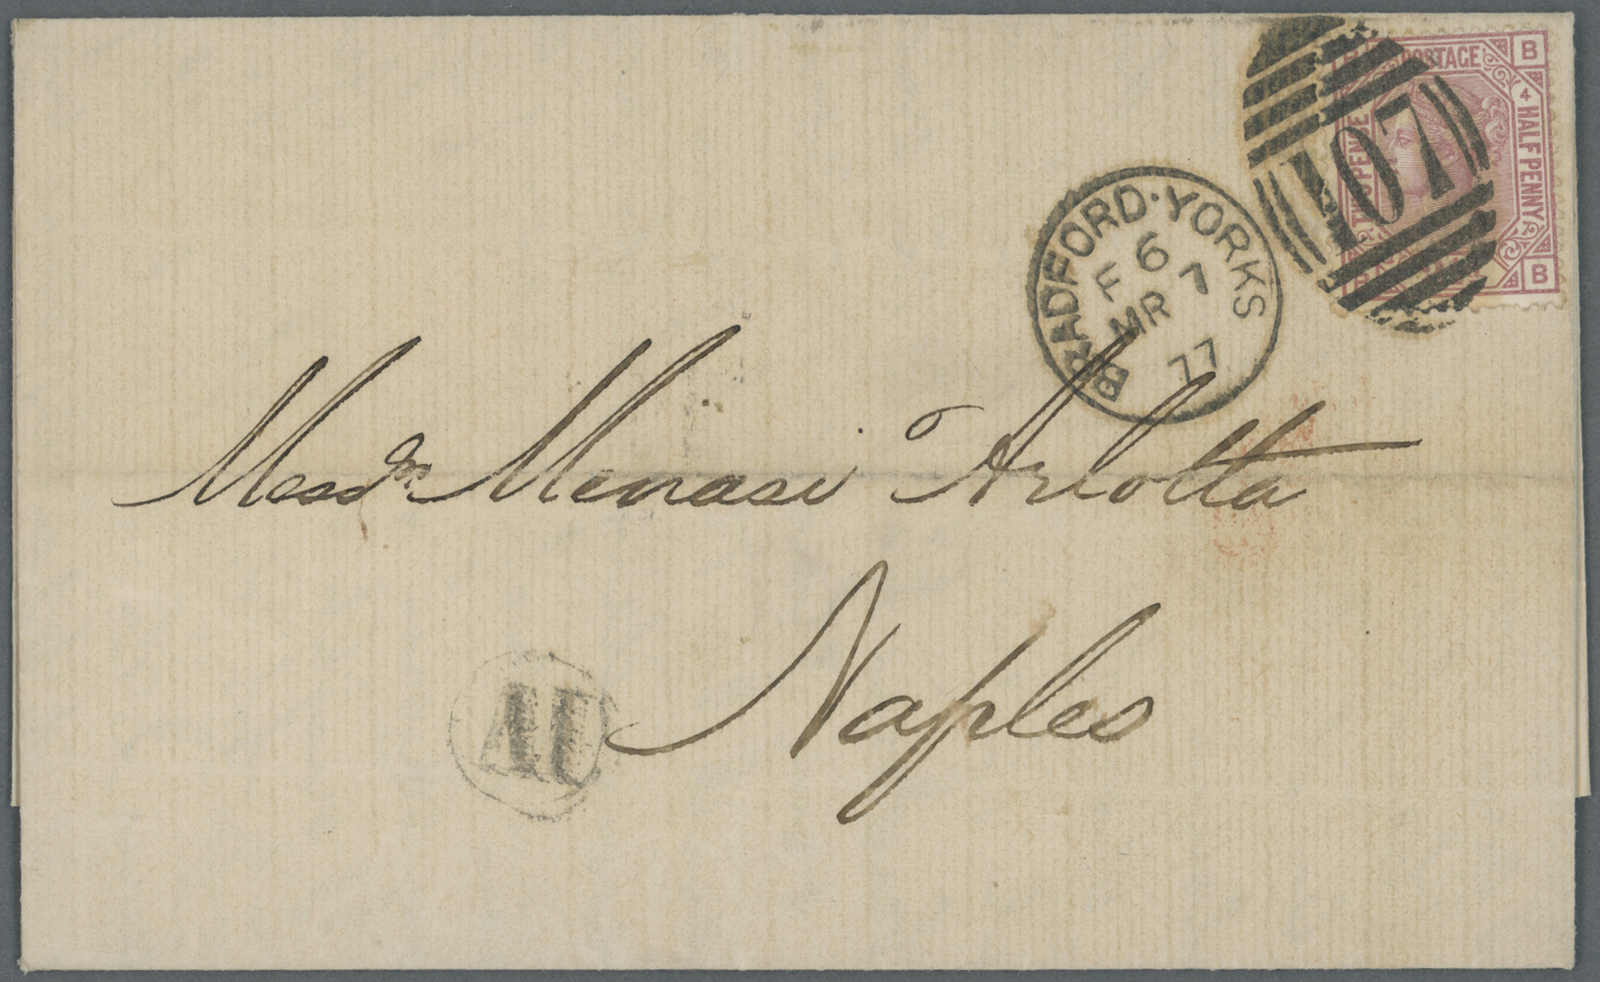 POSTAGE
B
4
HALFPENNY
B
107
BRADFORD·YORKS
F 6
MR 7
77
Messrs Menasi Arlotta
Naples